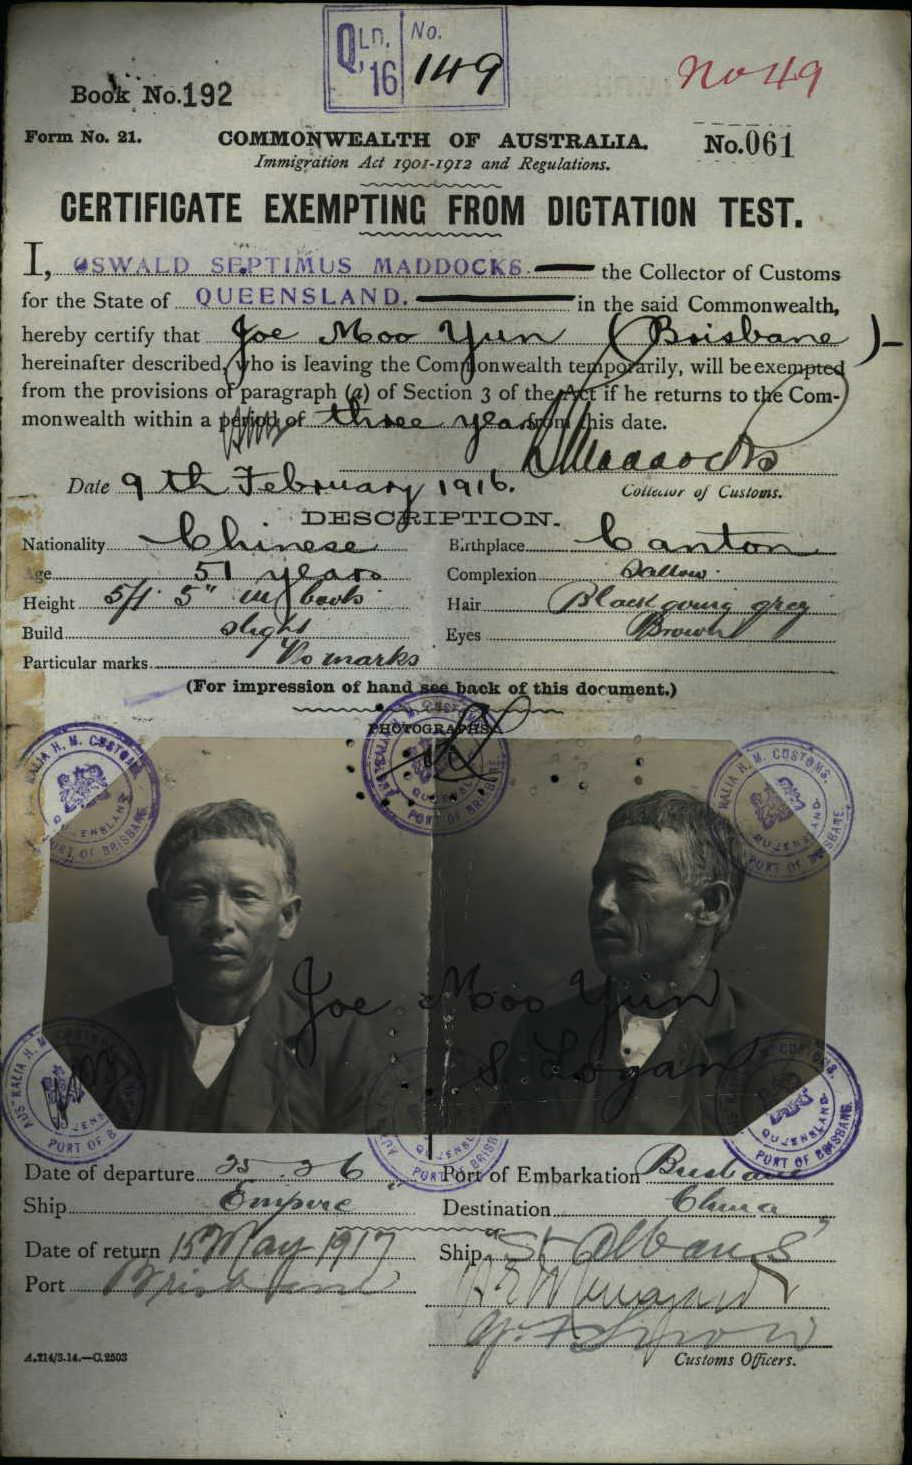 QLD. 16 No. 149
No 49
Book No. 192
Form No. 21. COMMONWEALTH OF AUSTRALIA. No. 061
Immigration Act 1901-1912 and Regulations.
CERTIFICATE EXEMPTING FROM DICTATION TEST.
I, OSWALD SEPTIMUS MADDOCKS the Collector of Customs
for the State of QUEENSLAND. in the said Commonwealth,
hereby certify that Joe Moo Yun (Brisbane)
hereinafter described, who is leaving the Commonwealth temporarily, will be exempted
from the provisions of paragraph (a) of Section 3 of the Act if he returns to the Com-
monwealth within a period of three years from this date.
Maddocks
Date 9th February 1916. Collector of Customs.
DESCRIPTION.
Nationality Chinese Birthplace Canton
Age 51 years Complexion Sallow
Height 5ft 5" in boots Hair Black going grey
Build slight Eyes Brown
Particular marks No marks
(For impression of hand see back of this document.)
PHOTOGRAPHS
AUSTRALIA H. M. CUSTOMS. QUEENSLAND PORT OF BRISBANE.
Joe Moo Yun
S Logan
Date of departure Port of Embarkation Brisbane
Ship Empire Destination China
Date of return 15 May 1917 Ship "St Albans"
Port Brisbane
A.214/3.14.—C.2503 Customs Officers.